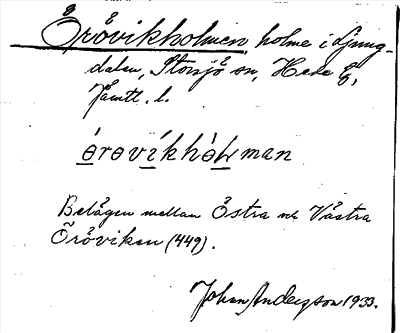 Öråvikholmen holme i Ljung-
dalen, Storsjö sn, Hede
Jämtl. l.
Belägen mellan Östra och Västra
Öråviken (449).
Johan Anderzson 1933.